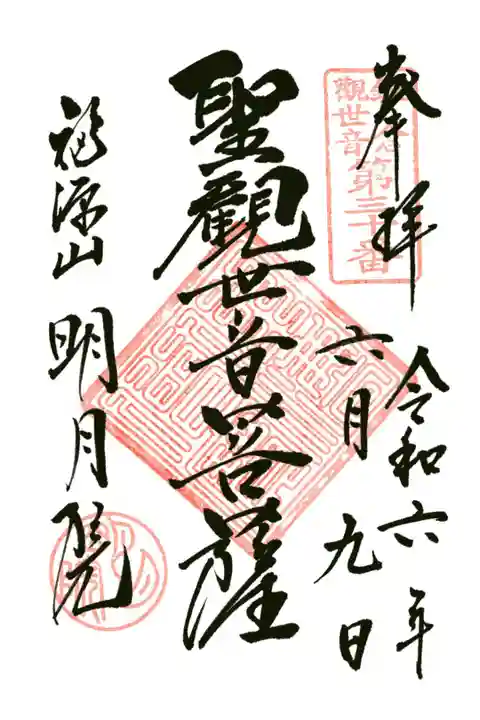 奉拝
鎌倉第三十番
觀世音
令和六年
六月九日
聖觀世音菩薩
福源山
明月院